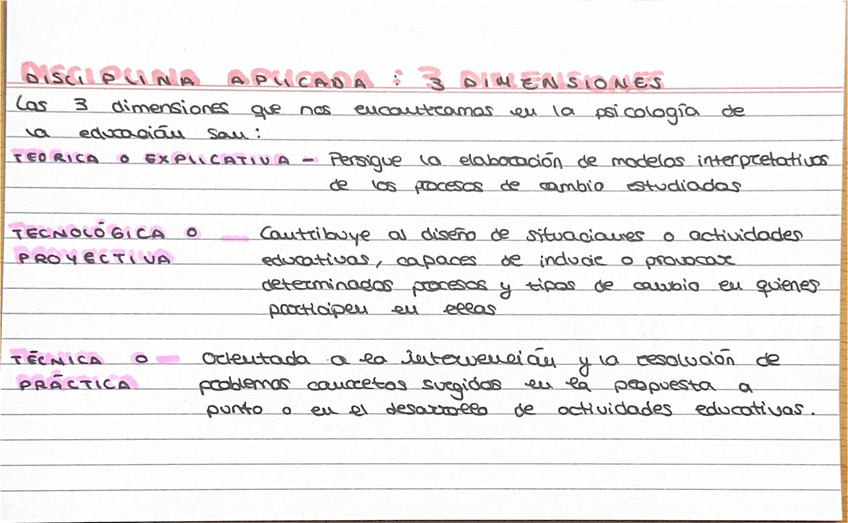 DISCIPLINA APLICADA : 3 DIMENSIONES
Las 3 dimensiones que nos encontramos en la psicología de
la educación son:
TEÓRICA O EXPLICATIVA - Persigue la elaboración de modelos interpretativos
de los procesos de cambio estudiados
TECNOLÓGICA O — Contribuye al diseño de situaciones o actividades
PROYECTIVA educativas, capaces de inducir o provocar
determinados procesos y tipos de cambio en quienes
participen en ellas
TÉCNICA O — Orientada a la intervención y la resolución de
PRÁCTICA problemas concretos surgidos en la propuesta a
punto o en el desarrollo de actividades educativas.